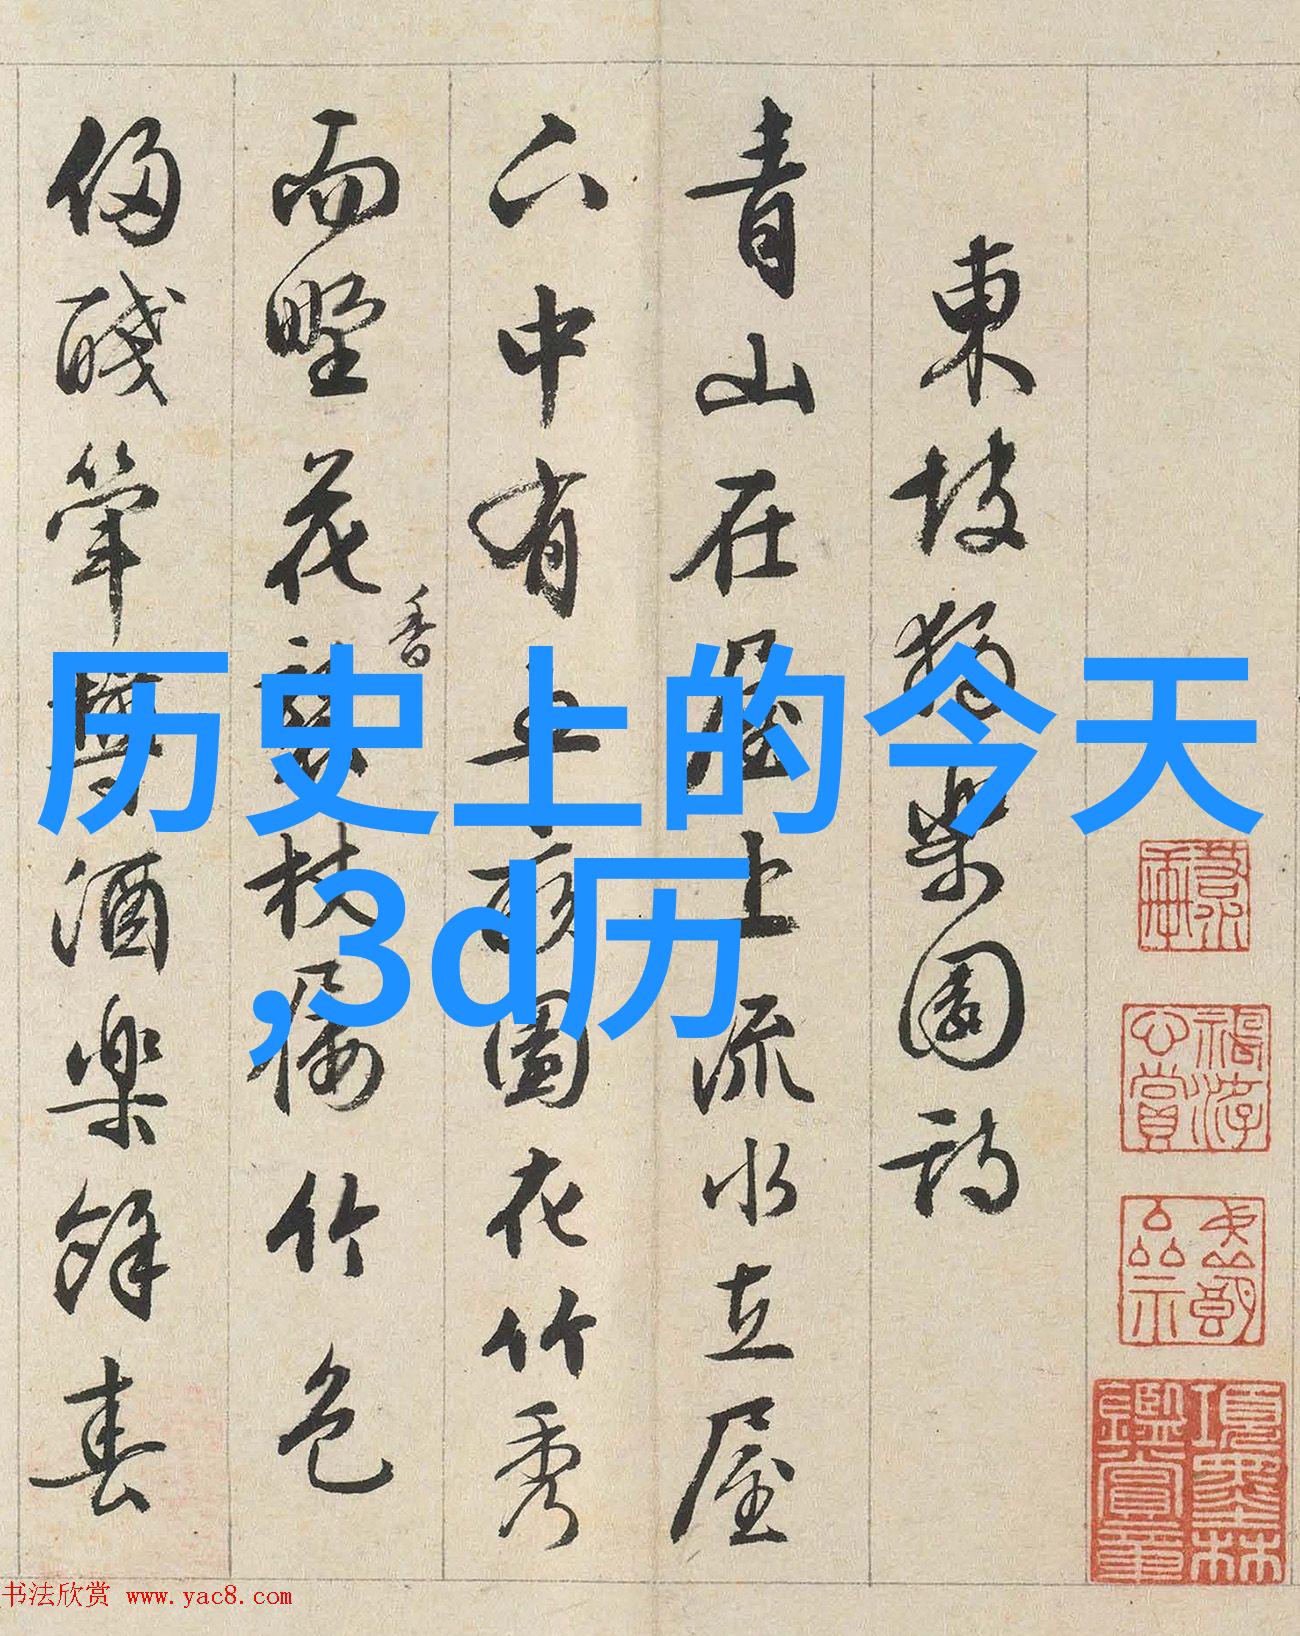 历史上的今天
,3d历
東坡獨樂園詩
青山在屋上流水在屋
下中有五畝園花竹秀
而野花香襲杖屨竹色
侵醆斝樽酒樂餘春
項墨林鑑賞章
书法欣赏 www.yac8.com